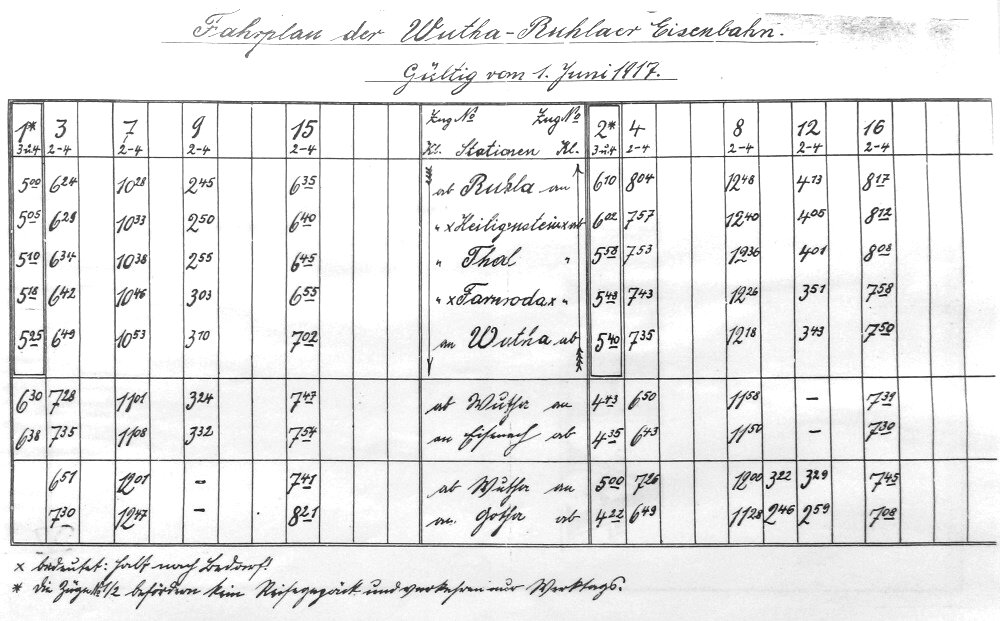 Fahrplan der Wutha-Ruhlaer Eisenbahn.
Gültig vom 1. Juni 1917.
1* 3 7 9 15 Zug No Zug No 2* 4 8 12 16
3u4 2-4 2-4 2-4 2-4 Kl. Stationen Kl. 3u4 2-4 2-4 2-4 2-4
5 00 6 24 10 28 2 45 6 35 ab Ruhla an 6 10 8 04 12 48 4 13 8 17
5 05 6 29 10 33 2 50 6 40 " x Heiligenstein x ab 6 02 7 57 12 40 4 05 8 12
5 10 6 34 10 38 2 55 6 45 " Thal " 5 58 7 53 12 36 4 01 8 08
5 18 6 42 10 46 3 03 6 55 " x Farnroda x " 5 49 7 43 12 26 3 51 7 58
5 25 6 49 10 53 3 10 7 02 an Wutha ab 5 40 7 35 12 18 3 43 7 50
6 30 7 28 11 01 3 24 7 47 ab Wutha an 4 43 6 50 11 58 – 7 39
6 38 7 35 11 08 3 32 7 54 an Eisenach ab 4 35 6 43 11 50 – 7 30
6 51 12 01 – 7 41 ab Wutha an 5 00 7 26 12 00 3 22 3 29 7 45
7 30 12 47 – 8 21 an. Gotha ab 4 22 6 49 11 28 2 46 2 59 7 08
x bedeutet: Halt nach Bedarf!
* die Züge No 1/2 befördern kein Reisegepäck und verkehren nur Werktags.